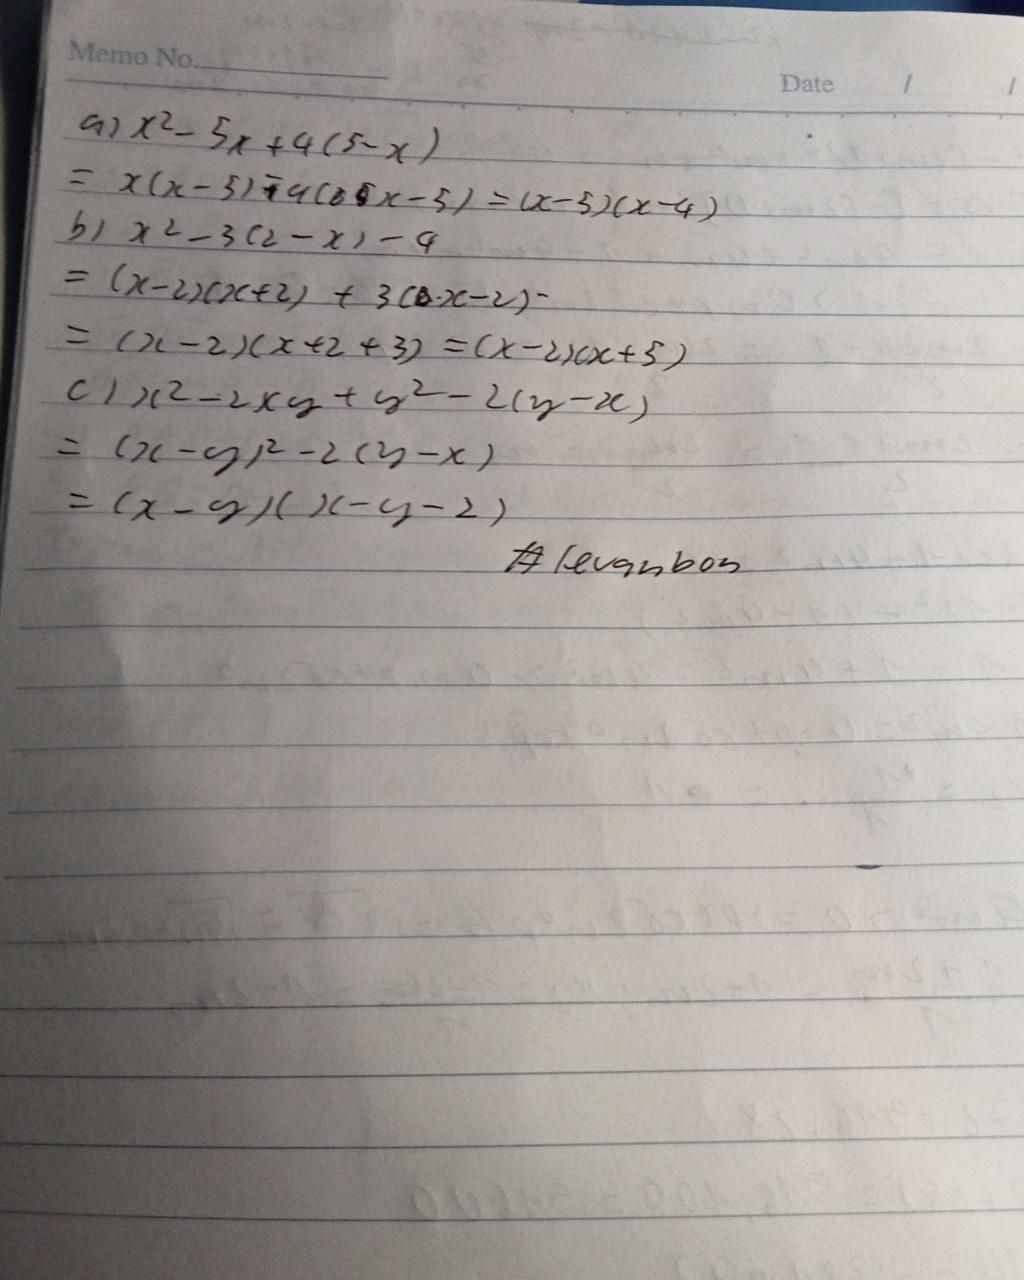 Memo No.
Date / /
a) x² - 5x + 4(5-x)
= x(x-5) - 4(x-5) = (x-5)(x-4)
b) x² - 3(2-x) - 4
= (x-2)(x+2) + 3(x-2)
= (x-2)(x+2+3) = (x-2)(x+5)
c) x² - 2xy + y² - 2(y-x)
= (x-y)² - 2(y-x)
= (x-y)(x-y-2)
#levanbon